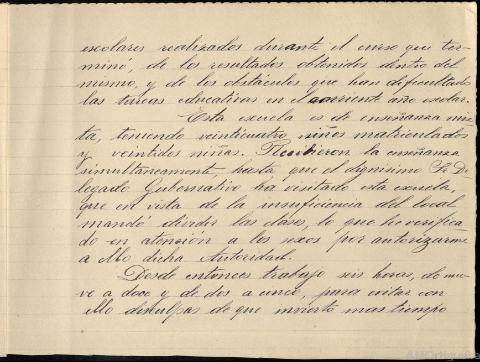 escolares realizados durante el curso que ter-
minó, de los resultados obtenidos dentro del
mismo, y de los obstáculos que han dificultado
las tareas educativas en el corriente año escolar.
Esta escuela es de enseñanza mix-
ta, teniendo veinticuatro niños matriculados
y veintidos niñas. Recibieron la enseñanza
simultáneamente, hasta que el dignísimo Sr. De-
legado Gubernativo ha visitado esta escuela,
que en vista de la insuficiencia del local
mandó dividir las clases, lo que he verifica-
do en atención a los sexos por autorizarme
a ello dicha Autoridad.
Desde entonces trabajo seis horas, de nue-
ve a doce y de dos a cinco, para evitar con
ello disculpas de que invierto mas tiempo